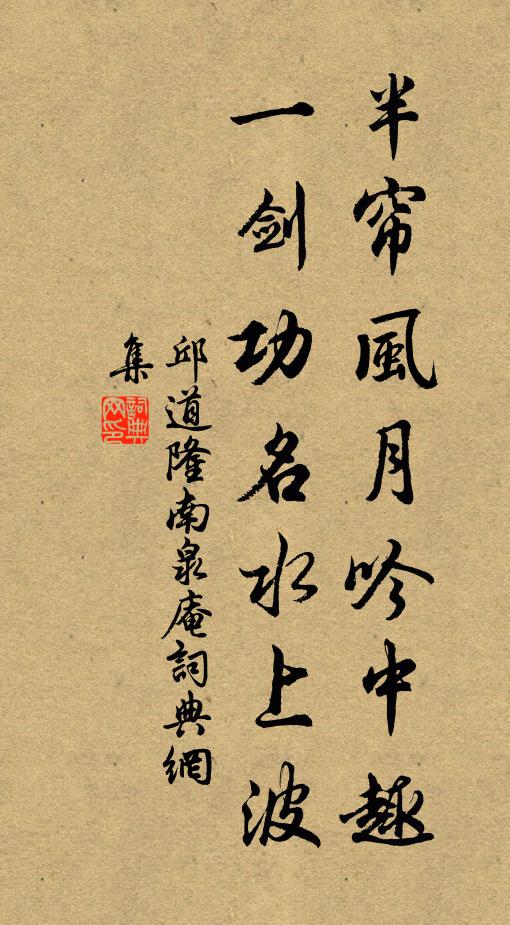 半帘風月吟中趣
一剑功名水上波
邱道隆南泉庵詞典網
集
詞典网印